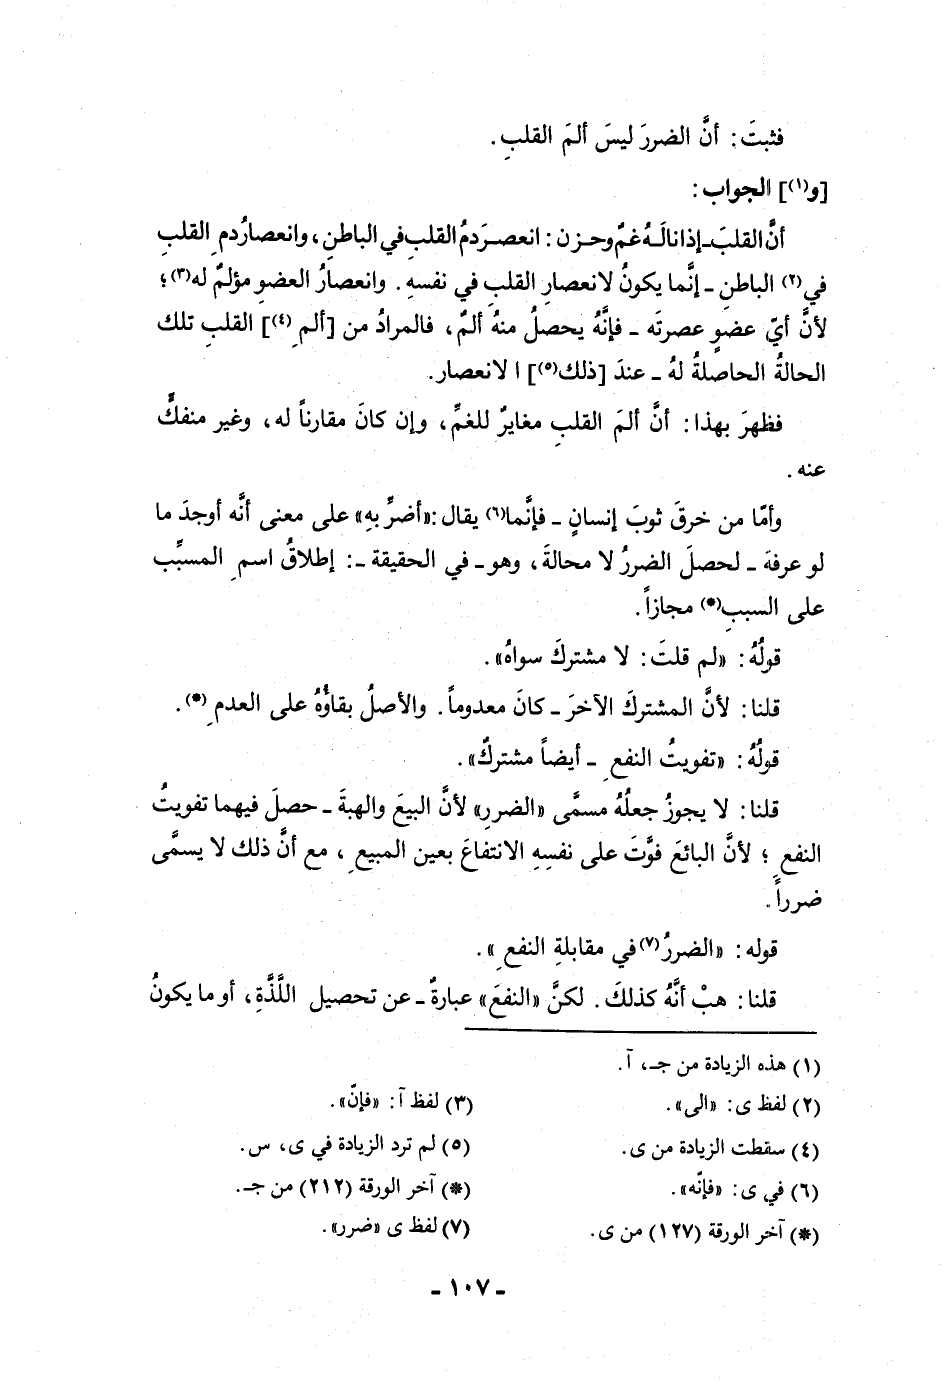 فثبتَ: أنَّ الضررَ ليسَ ألمَ القلبِ.
[و(١)] الجواب:
أنَّ القلبَ ـ إذا نالَـهُ غمٌ وحـزن: انعصـرَ دمُ القلبِ في الباطنِ، وانعصارُ دمِ القلبِ
في(٢) الباطنِ ـ إنَّما يكونُ لانعصارِ القلبِ في نفسهِ. وانعصارُ العضوِ مؤلمٌ له(٣)؛
لأنَّ أيَّ عضوٍ عصرتَه ـ فإنَّهُ يحصلُ منهُ ألمٌ، فالمرادُ من [ألمِ(٤)] القلبِ تلك
الحالةُ الحاصلةُ لهُ ـ عندَ [ذلك(٥)] الانعصار.
فظهرَ بهذا: أنَّ ألمَ القلبِ مغايرٌ للغمِّ، وإن كانَ مقارناً له، وغير منفكٍّ
عنه.
وأمّا من خرقَ ثوبَ إنسانٍ ـ فإنَّما(٦) يقال: «أضرَّ بهِ» على معنى أنَّه أوجدَ ما
لو عرفهَ ـ لحصلَ الضررُ لا محالةَ، وهو ـ في الحقيقة ـ: إطلاقُ اسمِ المسبَّب
على السببِ(*) مجازاً.
قولُهُ: «لم قلتَ: لا مشتركَ سواهُ».
قلنا: لأنَّ المشتركَ الآخرَ ـ كانَ معدوماً. والأصلُ بقاؤُهُ على العدمِ(*).
قولُهُ: «تفويتُ النفعِ ـ أيضاً مشتركٌ».
قلنا: لا يجوزُ جعلُهُ مسمَّى «الضررِ» لأنَّ البيعَ والهبةَ ـ حصلَ فيهما تفويتُ
النفعِ؛ لأنَّ البائعَ فوَّتَ على نفسِهِ الانتفاعَ بعين المبيعِ، مع أنَّ ذلك لا يسمَّى
ضرراً.
قوله: «الضررُ(٧) في مقابلةِ النفعِ».
قلنا: هبْ أنَّهُ كذلكَ. لكنَّ «النفعَ» عبارةٌ ـ عن تحصيل اللَّذَّةِ، أو ما يكونُ
(١) هذه الزيادة من جـ، آ.
(٢) لفظ ى: «الى».
(٣) لفظ آ: «فإنّ».
(٤) سقطت الزيادة من ى.
(٥) لم ترد الزيادة في ى، س.
(٦) في ى: «فإنّه».
(*) آخر الورقة (٢١٢) من جـ.
(*) آخر الورقة (١٢٧) من ى.
(٧) لفظ ى «ضرر».
ـ ١٠٧ ـ